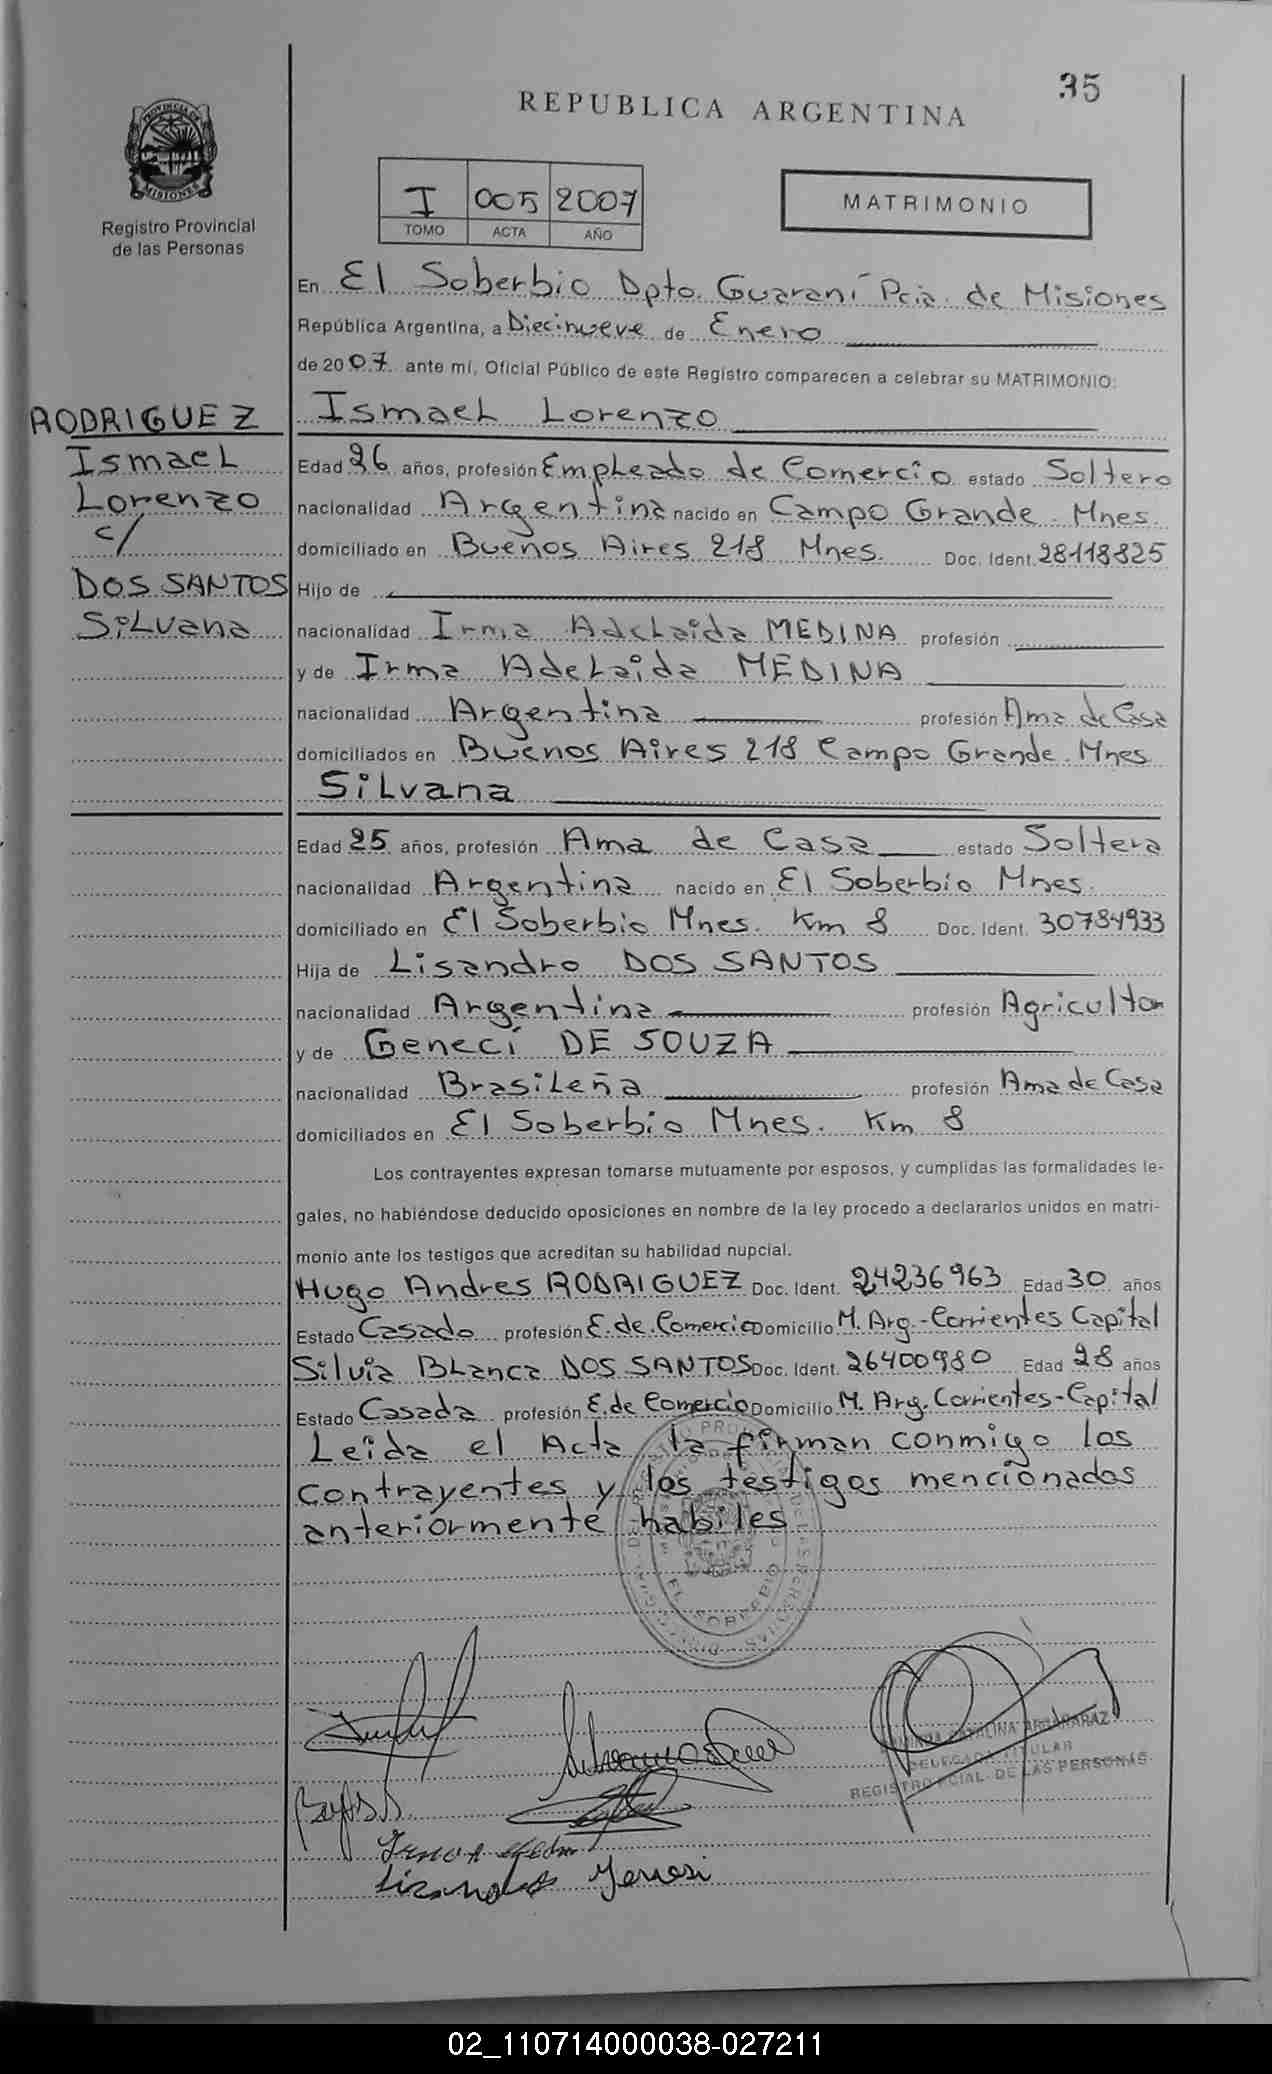 35
REPUBLICA ARGENTINA
PROVINCIA DE
MISIONES
Registro Provincial
de las Personas
I 005 2007
TOMO ACTA AÑO
MATRIMONIO
En El Soberbio Dpto. Guaraní Pcia. de Misiones
República Argentina, a Diecinueve de Enero
de 2007 ante mí, Oficial Público de este Registro comparecen a celebrar su MATRIMONIO:
RODRIGUEZ
Ismael
Lorenzo
c/
DOS SANTOS
Silvana
Ismael Lorenzo
Edad 26 años, profesión Empleado de Comercio estado Soltero
nacionalidad Argentina nacido en Campo Grande. Mnes.
domiciliado en Buenos Aires 218 Mnes. Doc. Ident. 28118825
Hijo de
nacionalidad Irma Adelaida MEDINA profesión
y de Irma Adelaida MEDINA
nacionalidad Argentina profesión Ama de Casa
domiciliados en Buenos Aires 218 Campo Grande. Mnes
Silvana
Edad 25 años, profesión Ama de Casa estado Soltera
nacionalidad Argentina nacido en El Soberbio Mnes.
domiciliado en El Soberbio Mnes. Km 8 Doc. Ident. 30784933
Hija de Lisandro DOS SANTOS
nacionalidad Argentina profesión Agricultor
y de Geneci DE SOUZA
nacionalidad Brasileña profesión Ama de Casa
domiciliados en El Soberbio Mnes. Km 8
Los contrayentes expresan tomarse mutuamente por esposos, y cumplidas las formalidades le-
gales, no habiéndose deducido oposiciones en nombre de la ley procedo a declararlos unidos en matri-
monio ante los testigos que acreditan su habilidad nupcial.
Hugo Andres RODRIGUEZ Doc. Ident. 24236963 Edad 30 años
Estado Casado profesión E. de Comercio Domicilio M. Arg.-Corrientes Capital
Silvia Blanca DOS SANTOS Doc. Ident. 26400980 Edad 28 años
Estado Casada profesión E. de Comercio Domicilio M. Arg. Corrientes-Capital
Leida el Acta la firman conmigo los
contrayentes y los testigos mencionados
anteriormente habiles
EL SOBERBIO
CATALINA
DELEGADA TITULAR
REGISTRO PCIAL. DE LAS PERSONAS
02_110714000038-027211